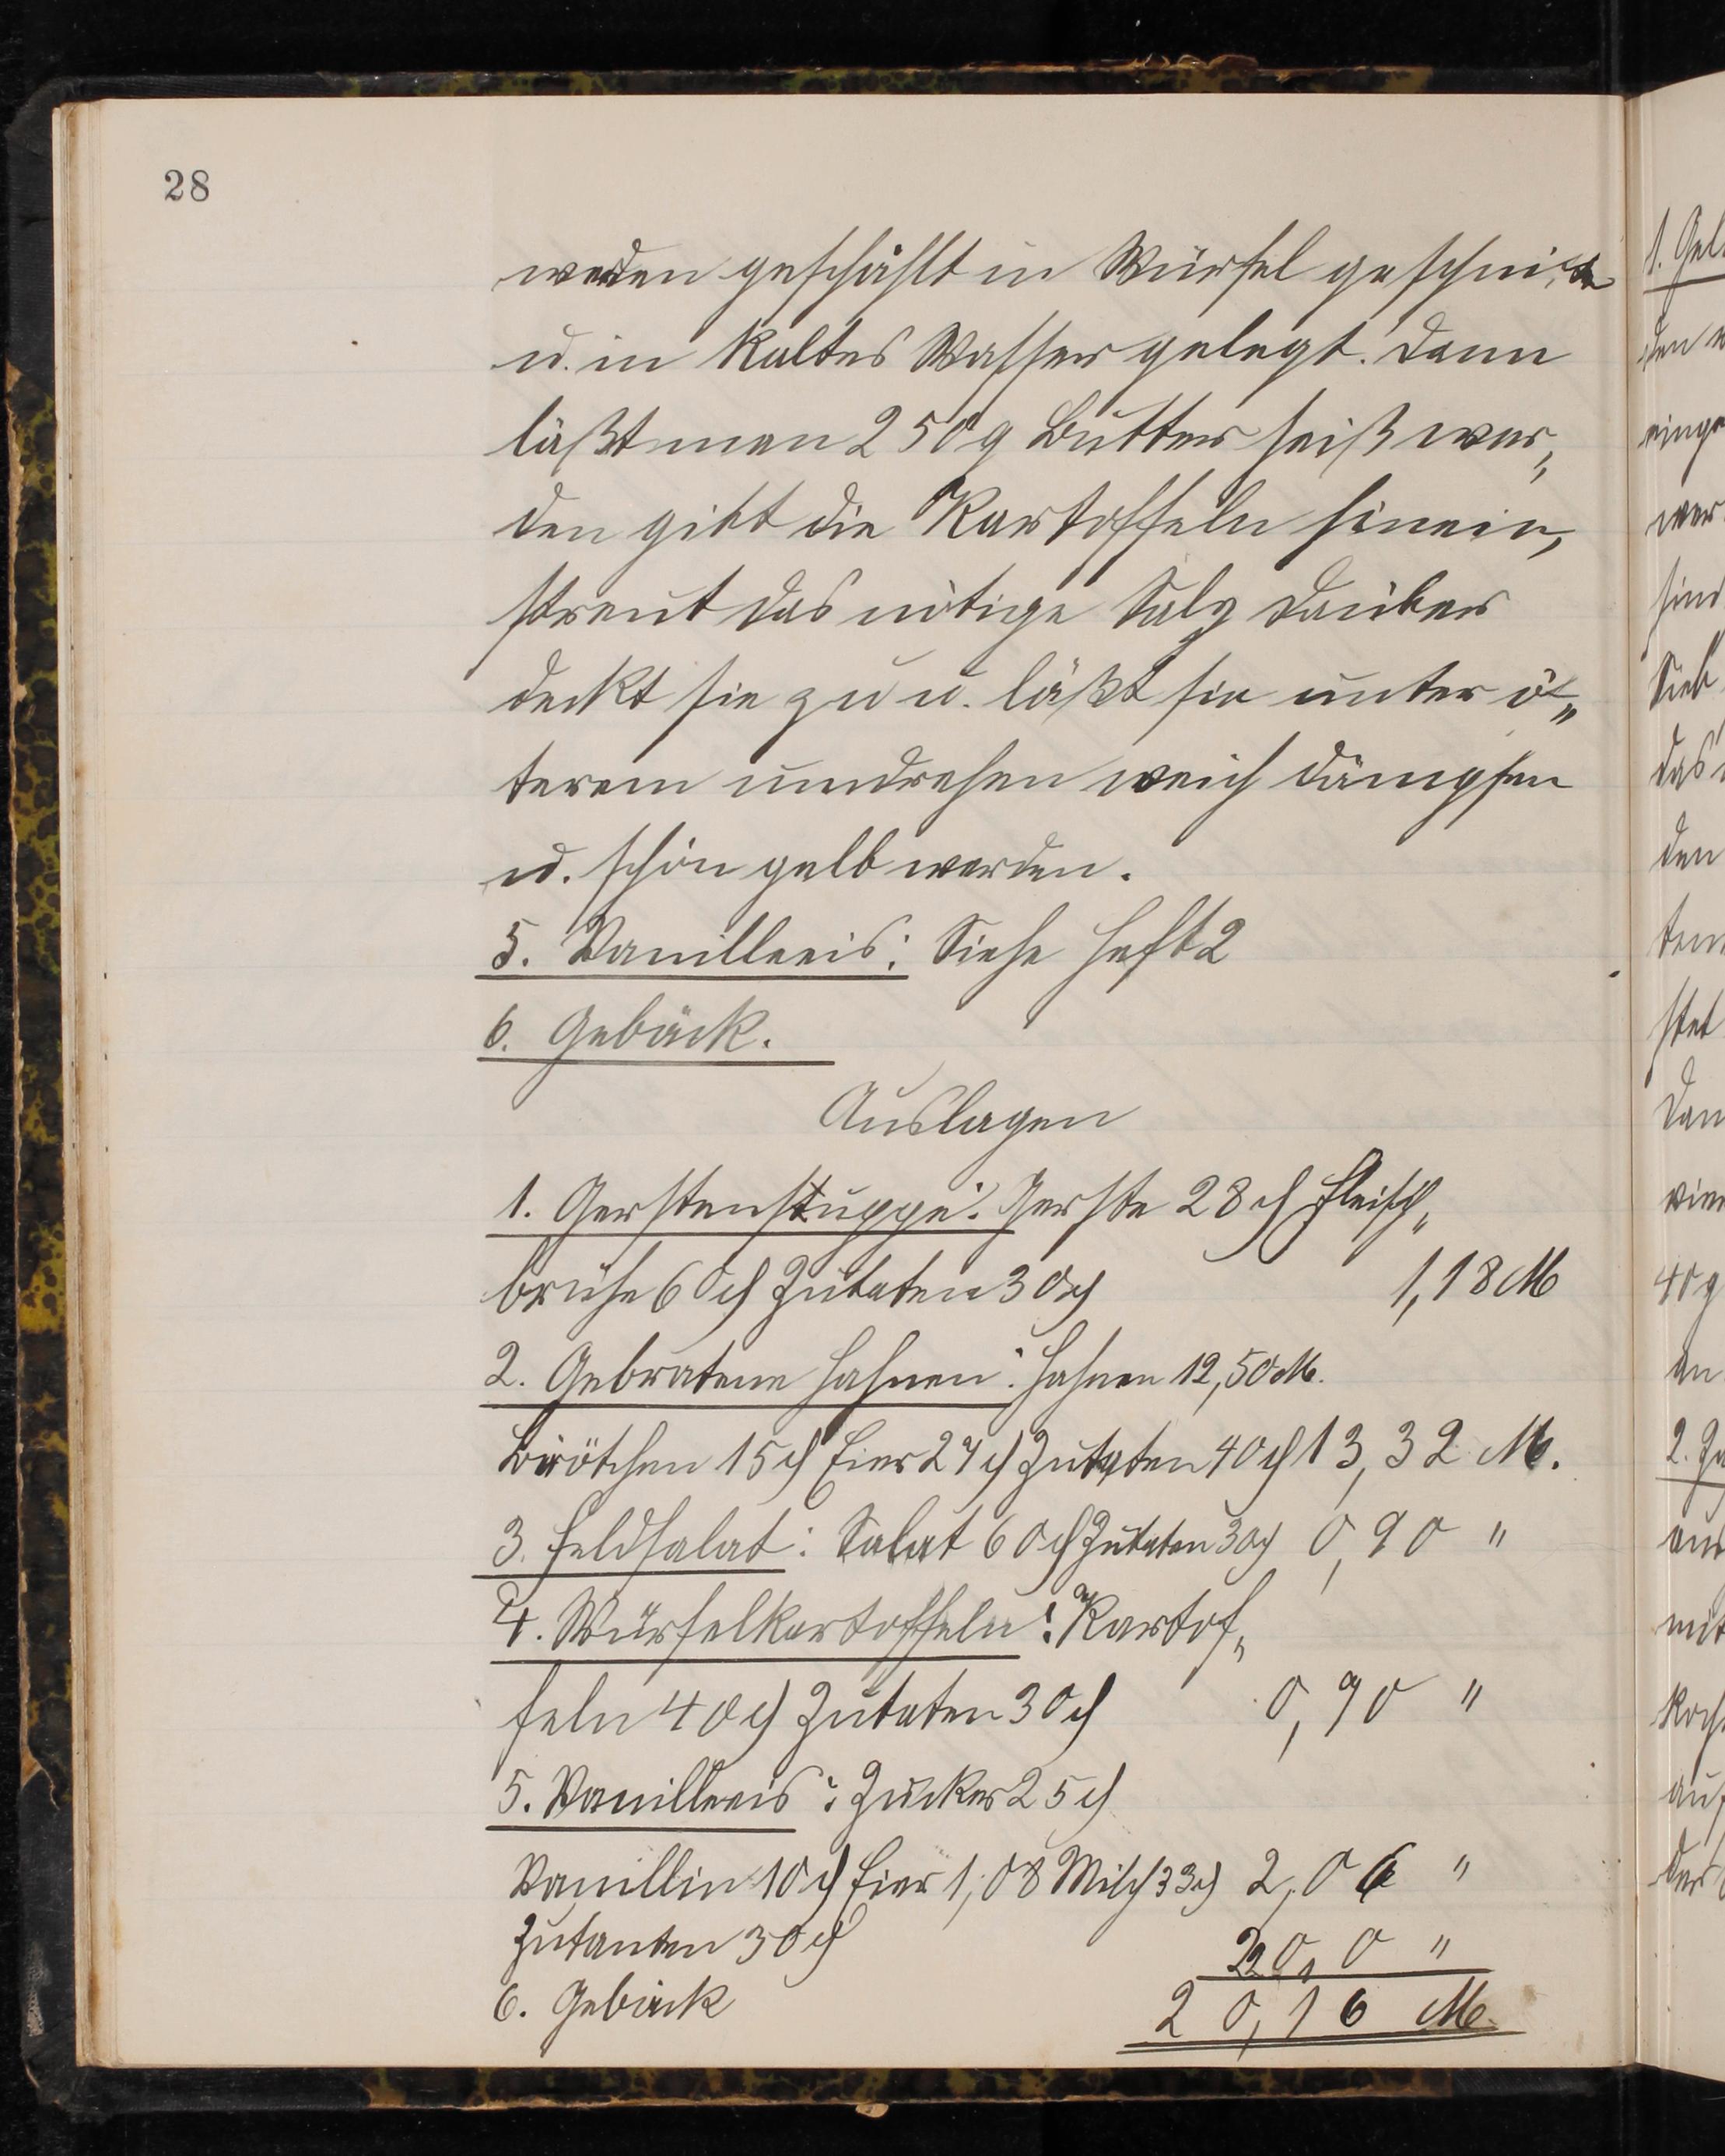 28
werden geschählt in Würfel geschnitten
u. in kaltes Wasser gelegt. Dann
läßt man 250 g Butter heiß wer„
den gibt die Kartoffeln hinein,
streut das nötige Salz darüber
deckt sie zu u. läßt sie unter öf„
terem umdrehen weich dämpfen
u. schön gelb werden.
5. Vanilleeis: Siehe Heft 2
6. Gebäck.
Auslagen
1. Gerstensuppe: Gerste 28 ₰ Fleisch„
brühe 60 ₰ Zutaten 30 ₰ 1,18 M
2. Gebratene Hahnen: Hahnen 12,50 M.
Brötchen 15 ₰ Eier 27 ₰ Zutaten 40 ₰ 13,32 M.
3. Feldsalat: Salat 60 ₰ Zutaten 30 ₰ 0,90 "
4. Würfelkartoffeln: Kartof„
feln 40 ₰ Zutaten 30 ₰ 0,70 "
5. Vanilleeis: Zucker 25 ₰
Vanillin 10 ₰ Eier 1,08 Milch 33 ₰ 2,06 "
Zutanten 30 ₰
6. Gebäck
20,16 M.